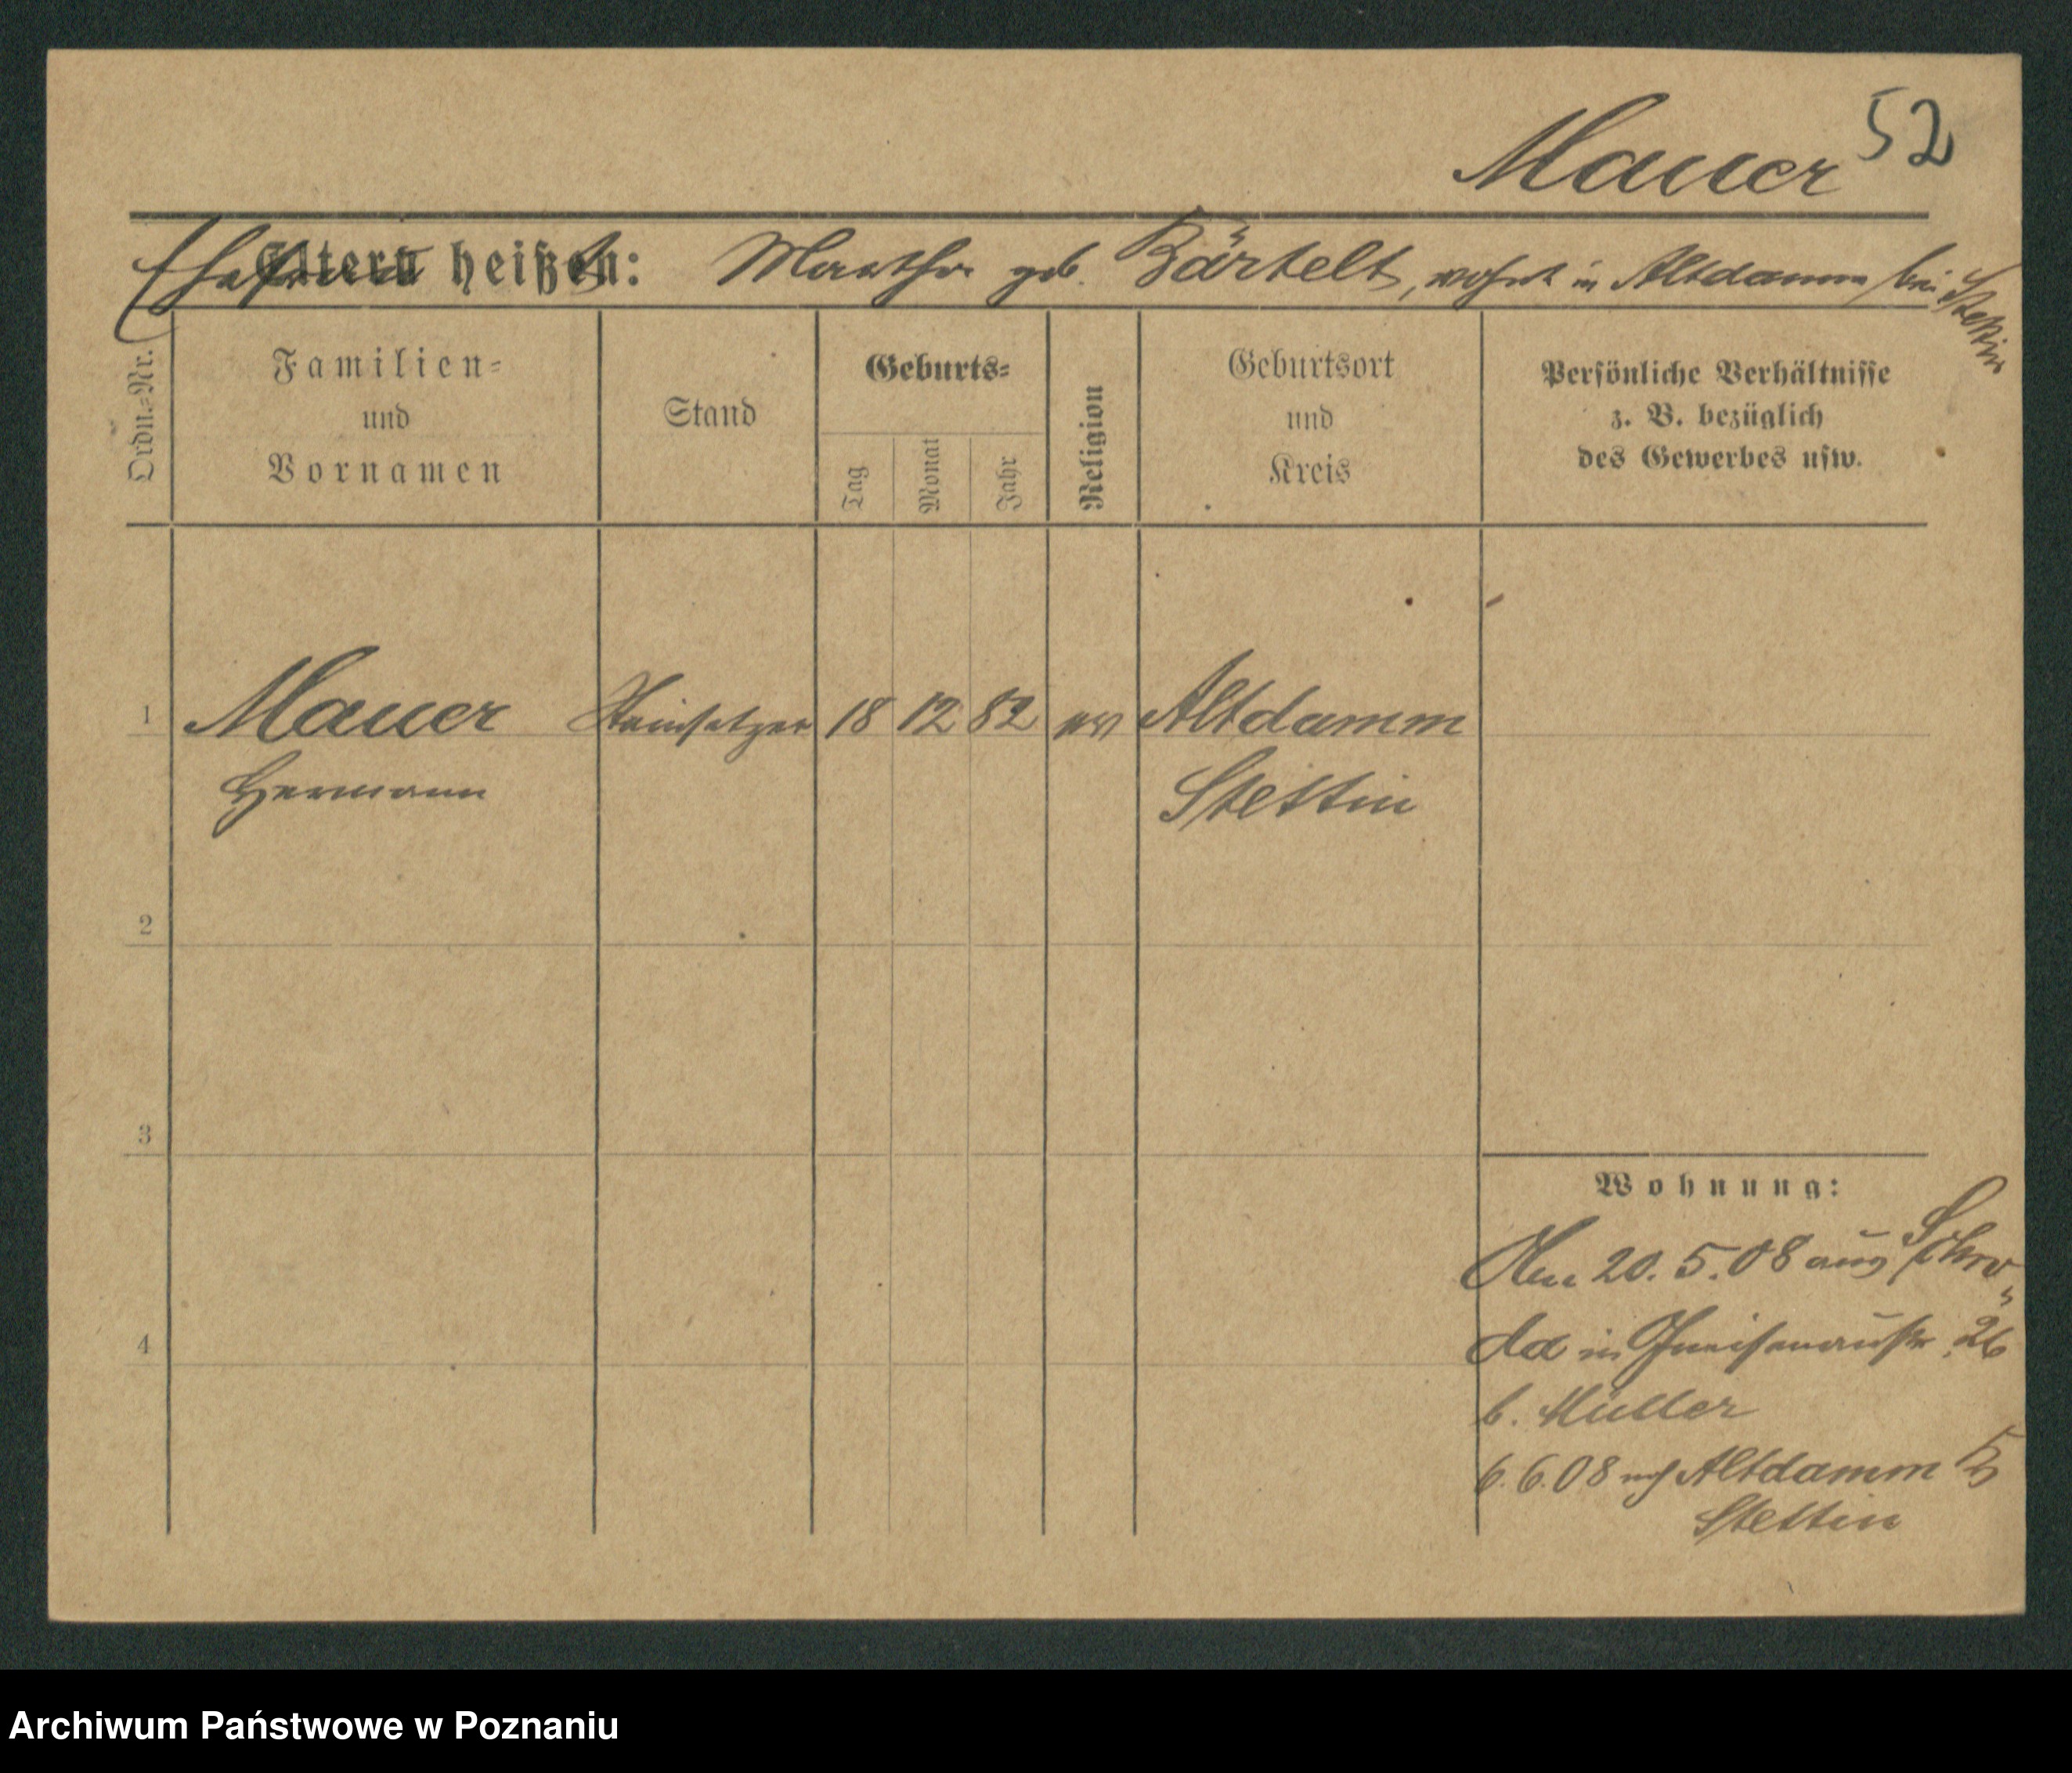 52
Mauer
Eltern heißen:
Ehefrau heißt Martha geb. Bärtelt, wohnt in Altdamm bei Stettin
Ordn.-Nr.
Familien-
und
Vornamen
Stand
Geburts-
Tag
Monat
Jahr
Religion
Geburtsort
und
Kreis
Persönliche Verhältnisse
z. B. bezüglich
des Gewerbes usw.
1 Mauer Steinsetzer 18 12 82 ev Altdamm
Hermann Stettin
2
3
4
Wohnung:
20. 5. 08 aus Schro-
da in Gneisenaustr. 26
b. Müller
6. 6. 08 nach Altdamm
Stettin
Archiwum Państwowe w Poznaniu